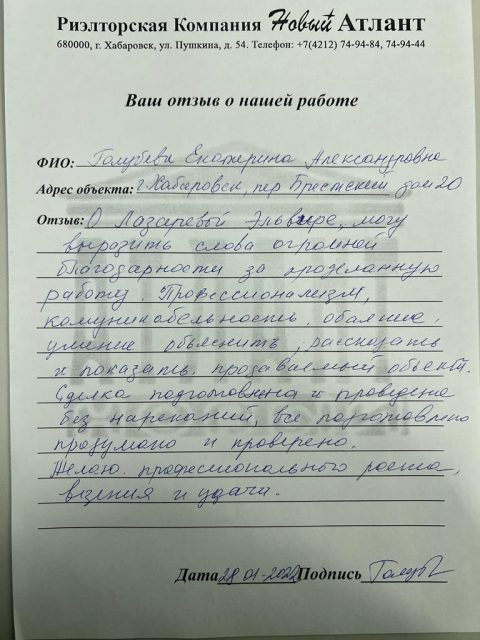 Риэлторская Компания Новый Атлант
680000, г. Хабаровск, ул. Пушкина, д. 54. Телефон: +7(4212) 74-94-84, 74-94-44
Ваш отзыв о нашей работе
ФИО: Голубева Екатерина Александровна
Адрес объекта: г. Хабаровск, пер Брестский дом 20
Отзыв: О Лазаревой Эльвире, могу
выразить слова огромной
благодарности за проделанную
работу. Профессионализм,
коммуникабельность, обаяние,
умение объяснить, рассказать
и показать продаваемый объект.
Сделка подготовлена и проведена
без нареканий, все подготовлено
продумано и проверено.
Желаю профессионального роста,
везения и удачи.
Дата 28-01-2022 Подпись